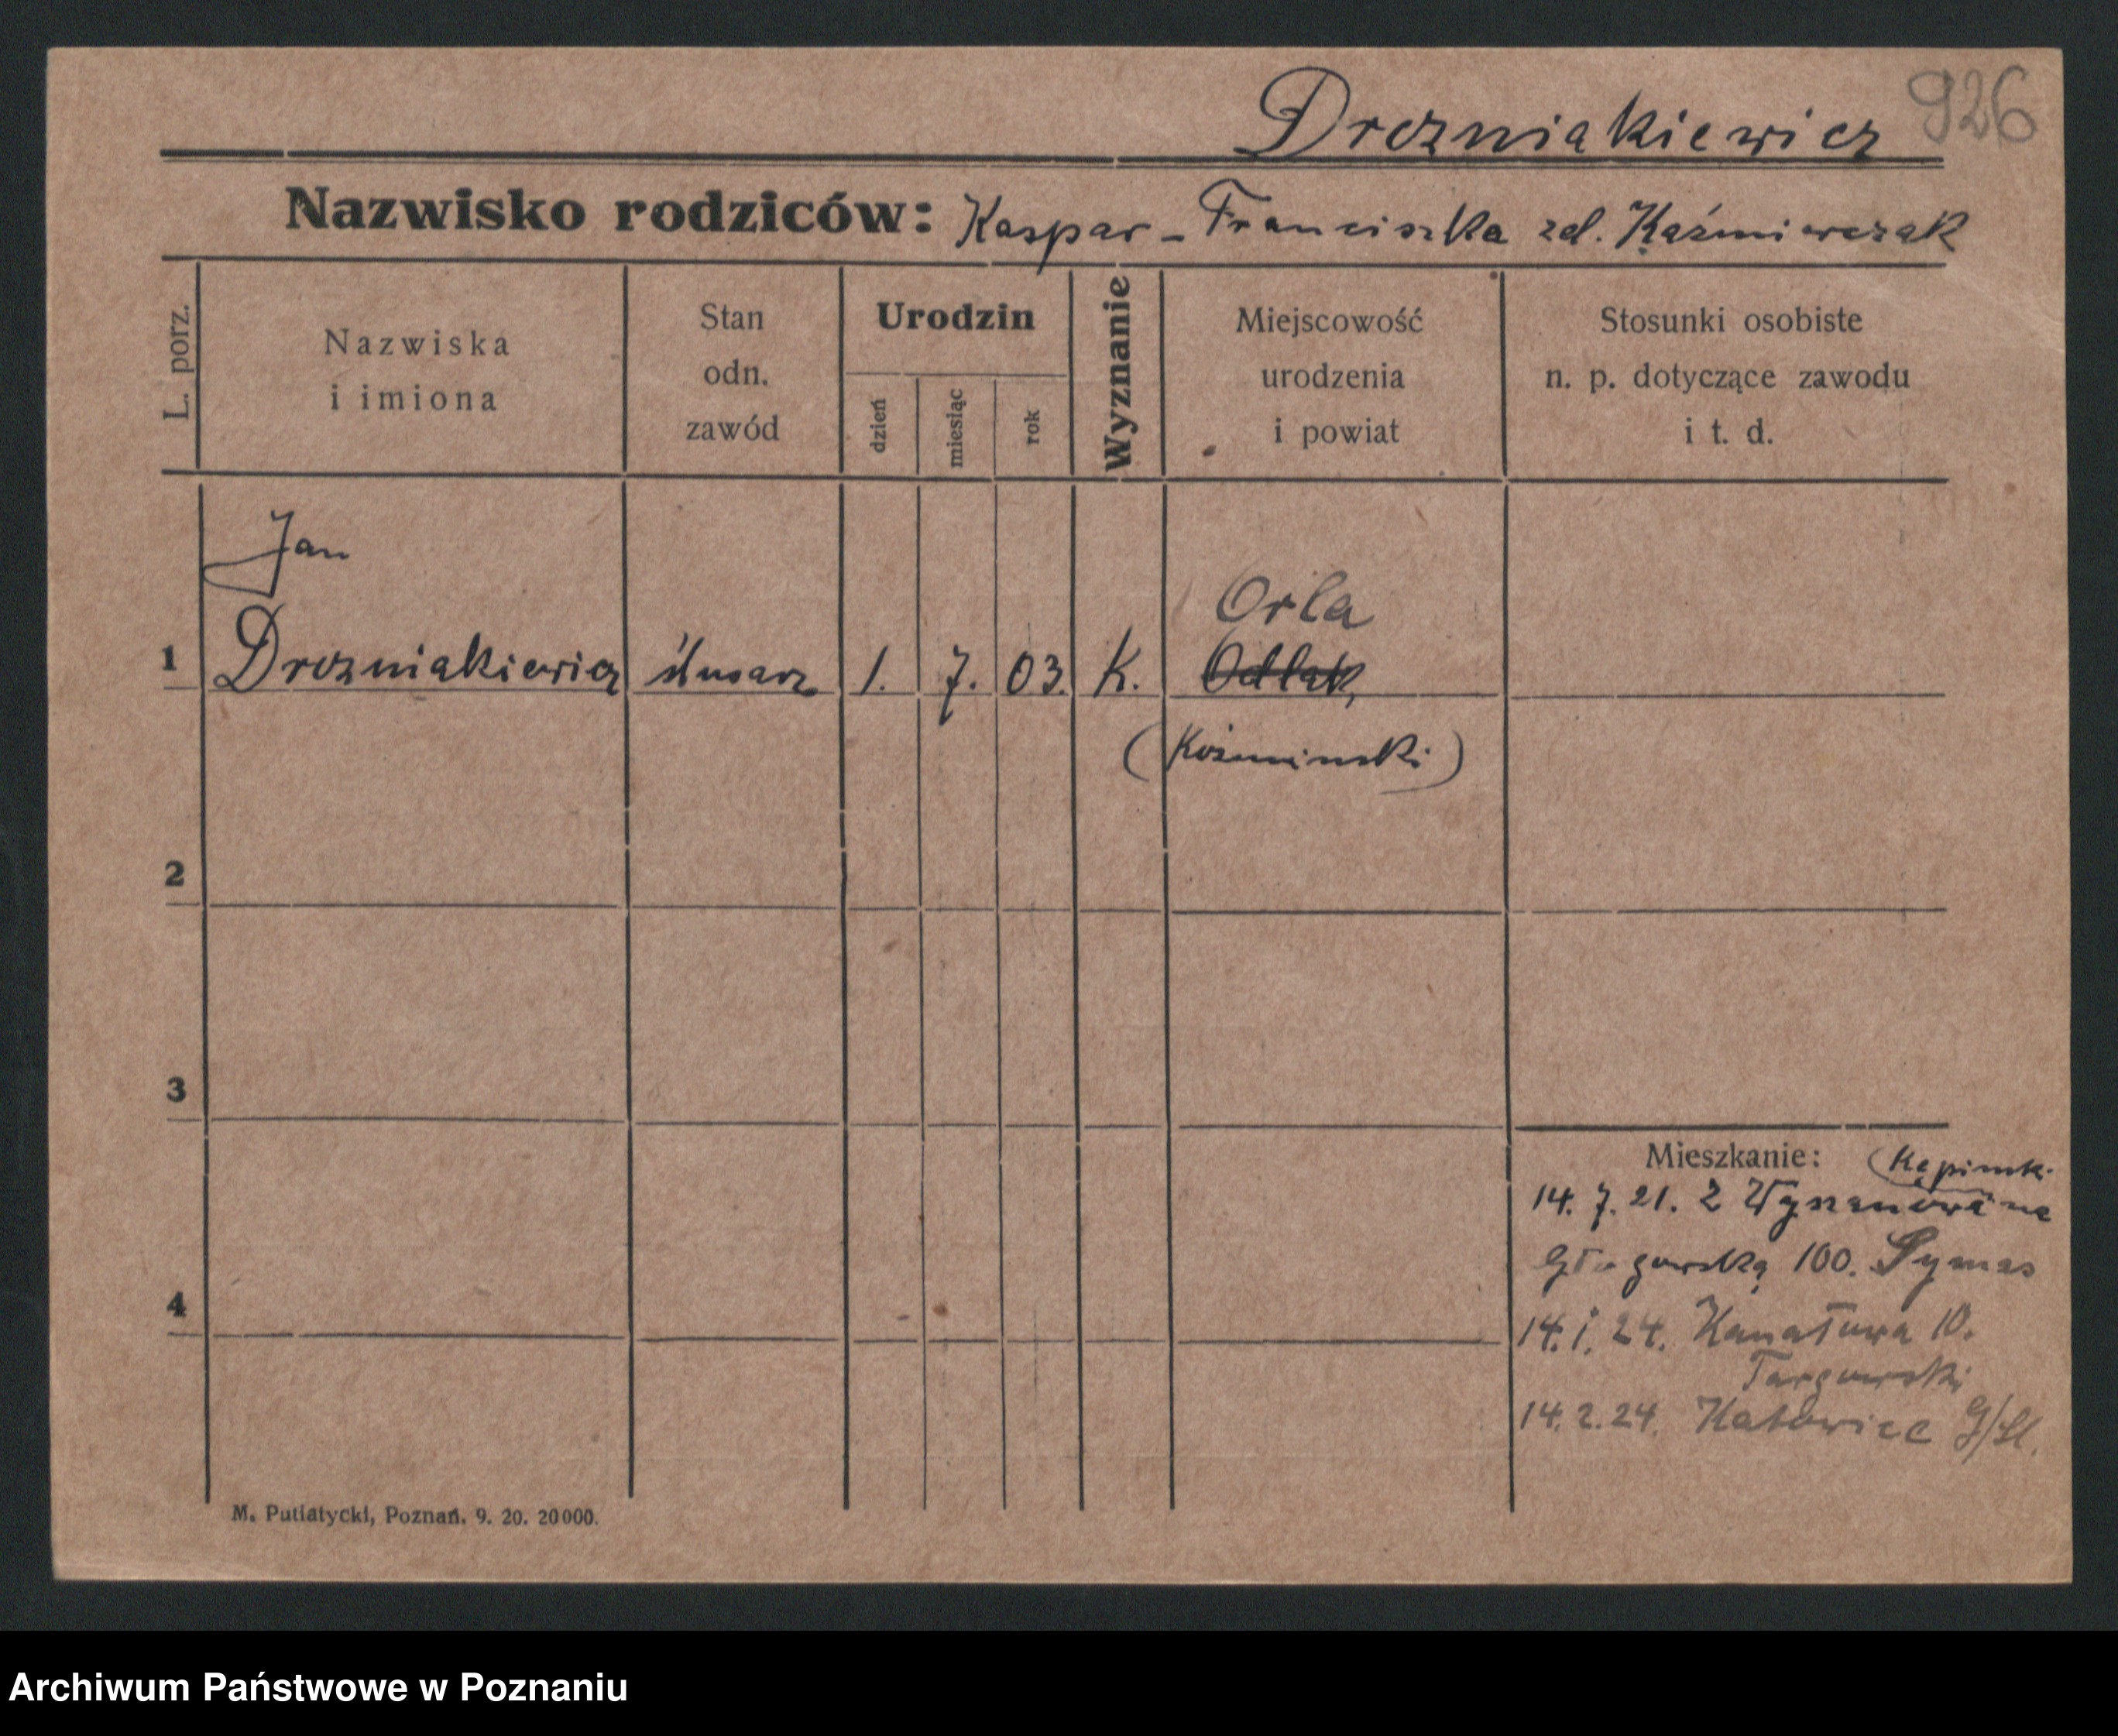 Drozniakiewicz 926
Nazwisko rodziców: Kaspar – Franciszka zd. Kaźmierczak
L. porz.
Nazwiska
i imiona
Stan
odn.
zawód
Urodzin
dzień
miesiąc
rok
Wyznanie
Miejscowość
urodzenia
i powiat
Stosunki osobiste
n. p. dotyczące zawodu
i t. d.
Jan
Orla
1 Drozniakiewicz ślusarz 1. 7. 03. K. Odlak,
(Koźminski)
2
3
Mieszkanie: (Kępinsk.
14. 7. 21. Z Wyszanowa na
Głogowską 100.
4
14. 1. 24. Kanałowa 10.
Targowski
14. 2. 24. Katowice G/Śl.
M. Putiatycki, Poznań. 9. 20. 20000.
Archiwum Państwowe w Poznaniu